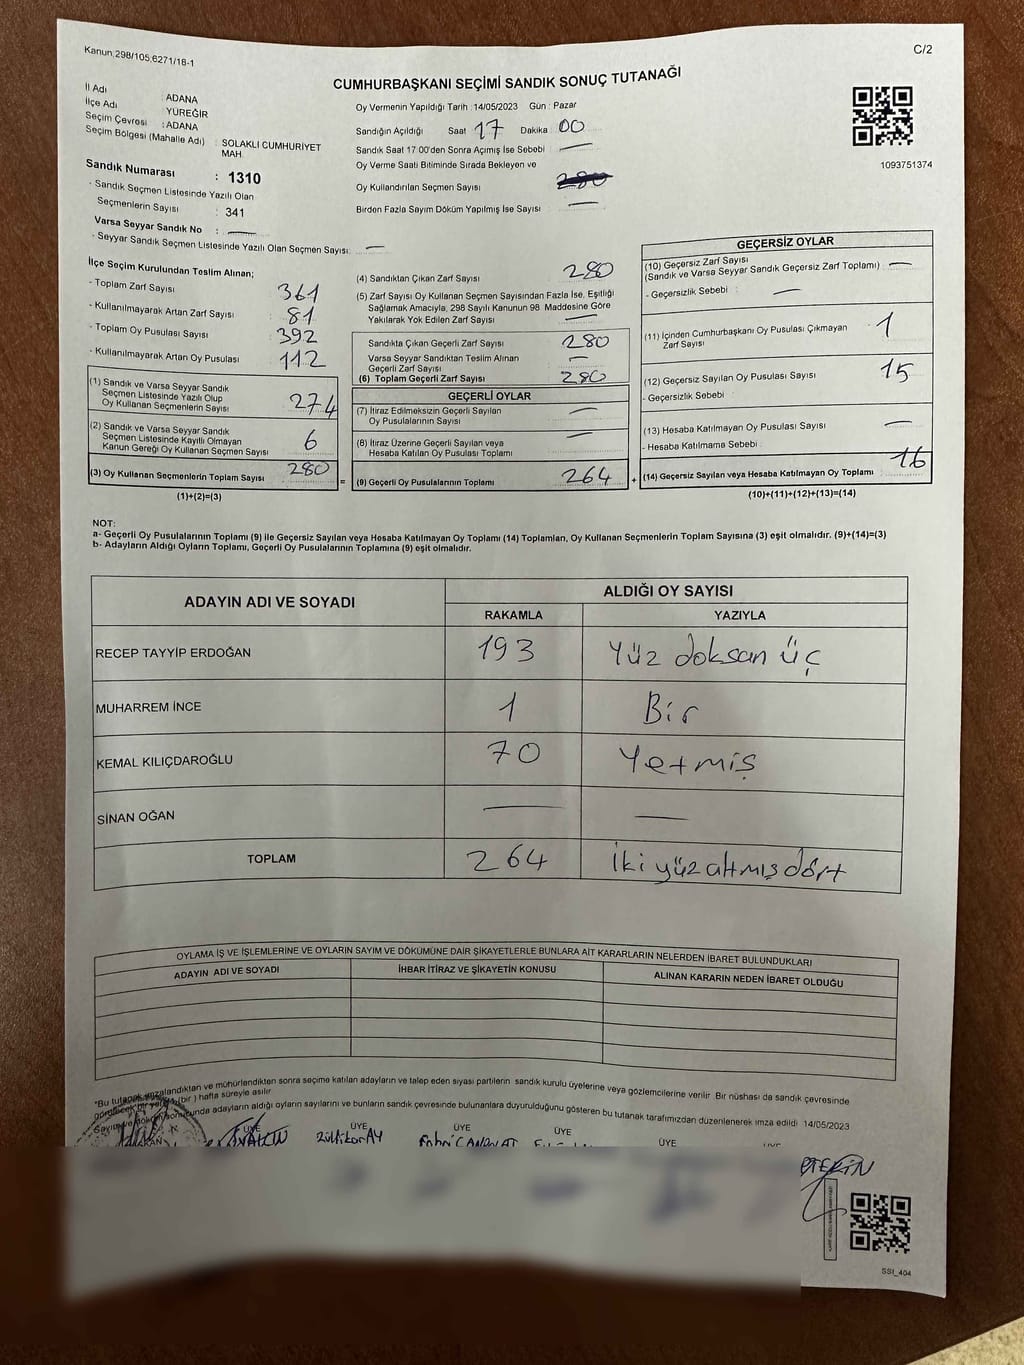 Kanun:298/105,6271/18-1
C/2
CUMHURBAŞKANI SEÇİMİ SANDIK SONUÇ TUTANAĞI
İl Adı : ADANA
İlçe Adı : YÜREĞİR
Seçim Çevresi : ADANA
Seçim Bölgesi (Mahalle Adı) : SOLAKLI CUMHURİYET
MAH.
Sandık Numarası : 1310
- Sandık Seçmen Listesinde Yazılı Olan
Seçmenlerin Sayısı : 341
Varsa Seyyar Sandık No :
- Seyyar Sandık Seçmen Listesinde Yazılı Olan Seçmen Sayısı:
Oy Vermenin Yapıldığı Tarih :14/05/2023 Gün : Pazar
Sandığın Açıldığı Saat 17 Dakika : 00
Sandık Saat 17:00'den Sonra Açımış İse Sebebi :
Oy Verme Saati Bitiminde Sırada Bekleyen ve
Oy Kullandırılan Seçmen Sayısı : 280
Birden Fazla Sayım Döküm Yapılmış İse Sayısı :
1093751374
İlçe Seçim Kurulundan Teslim Alınan;
- Toplam Zarf Sayısı : 361
- Kullanılmayarak Artan Zarf Sayısı : 81
- Toplam Oy Pusulası Sayısı : 392
- Kullanılmayarak Artan Oy Pusulası : 112
(1) Sandık ve Varsa Seyyar Sandık
Seçmen Listesinde Yazılı Olup
Oy Kullanan Seçmenlerin Sayısı : 274
(2) Sandık ve Varsa Seyyar Sandık
Seçmen Listesinde Kayıtlı Olmayan
Kanun Gereği Oy Kullanan Seçmen Sayısı : 6
(3) Oy Kullanan Seçmenlerin Toplam Sayısı : 280
(1)+(2)=(3)
(4) Sandıktan Çıkan Zarf Sayısı : 280
(5) Zarf Sayısı Oy Kullanan Seçmen Sayısından Fazla İse, Eşitliği
Sağlamak Amacıyla, 298 Sayılı Kanunun 98. Maddesine Göre
Yakılarak Yok Edilen Zarf Sayısı :
Sandıkta Çıkan Geçerli Zarf Sayısı : 280
Varsa Seyyar Sandıktan Teslim Alınan
Geçerli Zarf Sayısı :
(6) Toplam Geçerli Zarf Sayısı : 280
GEÇERLİ OYLAR
(7) İtiraz Edilmeksizin Geçerli Sayılan
Oy Pusulalarının Sayısı :
(8) İtiraz Üzerine Geçerli Sayılan veya
Hesaba Katılan Oy Pusulası Toplamı :
= (9) Geçerli Oy Pusulalarının Toplamı : 264
GEÇERSİZ OYLAR
(10) Geçersiz Zarf Sayısı
(Sandık ve Varsa Seyyar Sandık Geçersiz Zarf Toplamı) :
- Geçersizlik Sebebi :
(11) İçinden Cumhurbaşkanı Oy Pusulası Çıkmayan
Zarf Sayısı : 1
(12) Geçersiz Sayılan Oy Pusulası Sayısı : 15
- Geçersizlik Sebebi :
(13) Hesaba Katılmayan Oy Pusulası Sayısı :
- Hesaba Katılmama Sebebi :
+ (14) Geçersiz Sayılan veya Hesaba Katılmayan Oy Toplamı : 16
(10)+(11)+(12)+(13)=(14)
NOT:
a- Geçerli Oy Pusulalarının Toplamı (9) ile Geçersiz Sayılan veya Hesaba Katılmayan Oy Toplamı (14) Toplamları, Oy Kullanan Seçmenlerin Toplam Sayısına (3) eşit olmalıdır. (9)+(14)=(3)
b- Adayların Aldığı Oyların Toplamı, Geçerli Oy Pusulalarının Toplamına (9) eşit olmalıdır.
ADAYIN ADI VE SOYADI ALDIĞI OY SAYISI
RAKAMLA YAZIYLA
RECEP TAYYİP ERDOĞAN 193 Yüz doksan üç
MUHARREM İNCE 1 Bir
KEMAL KILIÇDAROĞLU 70 Yetmiş
SİNAN OĞAN
TOPLAM 264 İki yüz altmış dört
OYLAMA İŞ VE İŞLEMLERİNE VE OYLARIN SAYIM VE DÖKÜMÜNE DAİR ŞİKAYETLERLE BUNLARA AİT KARARLARIN NELERDEN İBARET BULUNDUKLARI
ADAYIN ADI VE SOYADI İHBAR İTİRAZ VE ŞİKAYETİN KONUSU ALINAN KARARIN NEDEN İBARET OLDUĞU
*Bu tutanak imzalandıktan ve mühürlendikten sonra seçime katılan adayların ve talep eden siyasi partilerin sandık kurulu üyelerine veya gözlemcilerine verilir. Bir nüshası da sandık çevresinde
görülecek bir yere (bir) hafta süreyle asılır.
Sayım ve döküm sonunda adayların aldığı oyların sayılarını ve bunların sandık çevresinde bulunanlara duyurulduğunu gösteren bu tutanak tarafımızdan düzenlenerek imza edildi. 14/05/2023
ÜYE ÜYE ÜYE ÜYE
Zülfikar AY
SSI_404